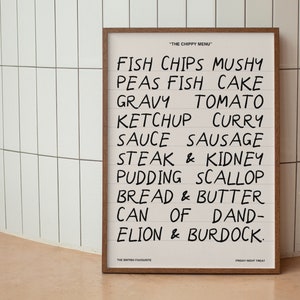 "THE CHIPPY MENU"
FISH CHIPS MUSHY
PEAS FISH CAKE
GRAVY TOMATO
KETCHUP CURRY
SAUCE SAUSAGE
STEAK & KIDNEY
PUDDING SCALLOP
BREAD & BUTTER
CAN OF DAND-
ELION & BURDOCK.
THE BRITISH FAVOURITE FRIDAY NIGHT TREAT